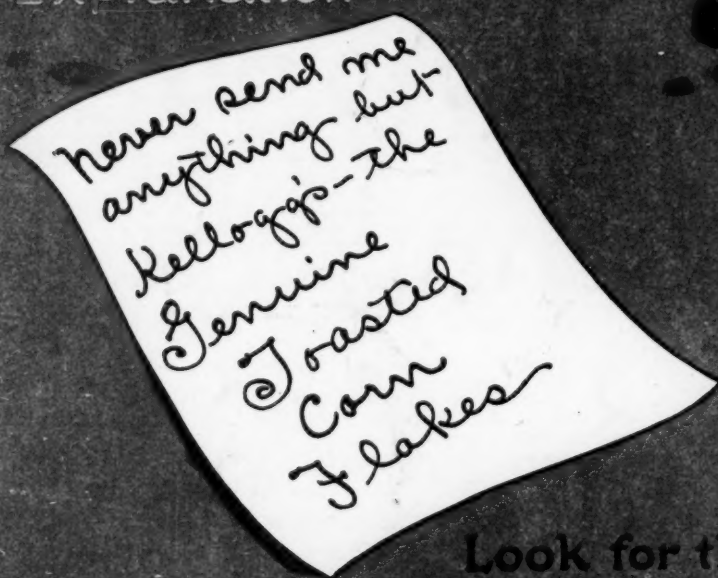 Explanation
never send me
anything but
Kellogg's-the
Genuine
Toasted
Corn
Flakes
Look for t